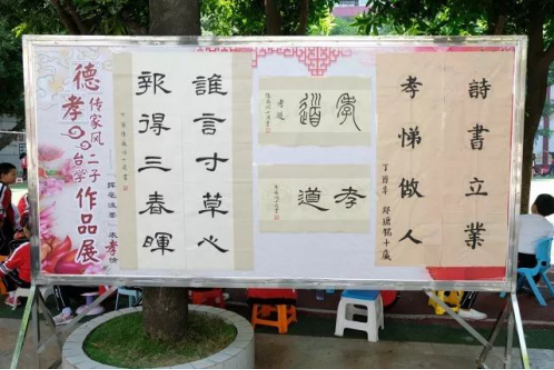 德孝传家风
台二学子作品展
誰言寸草心
報得三春暉
孝道
孝道
孝道
詩書立業
孝悌做人